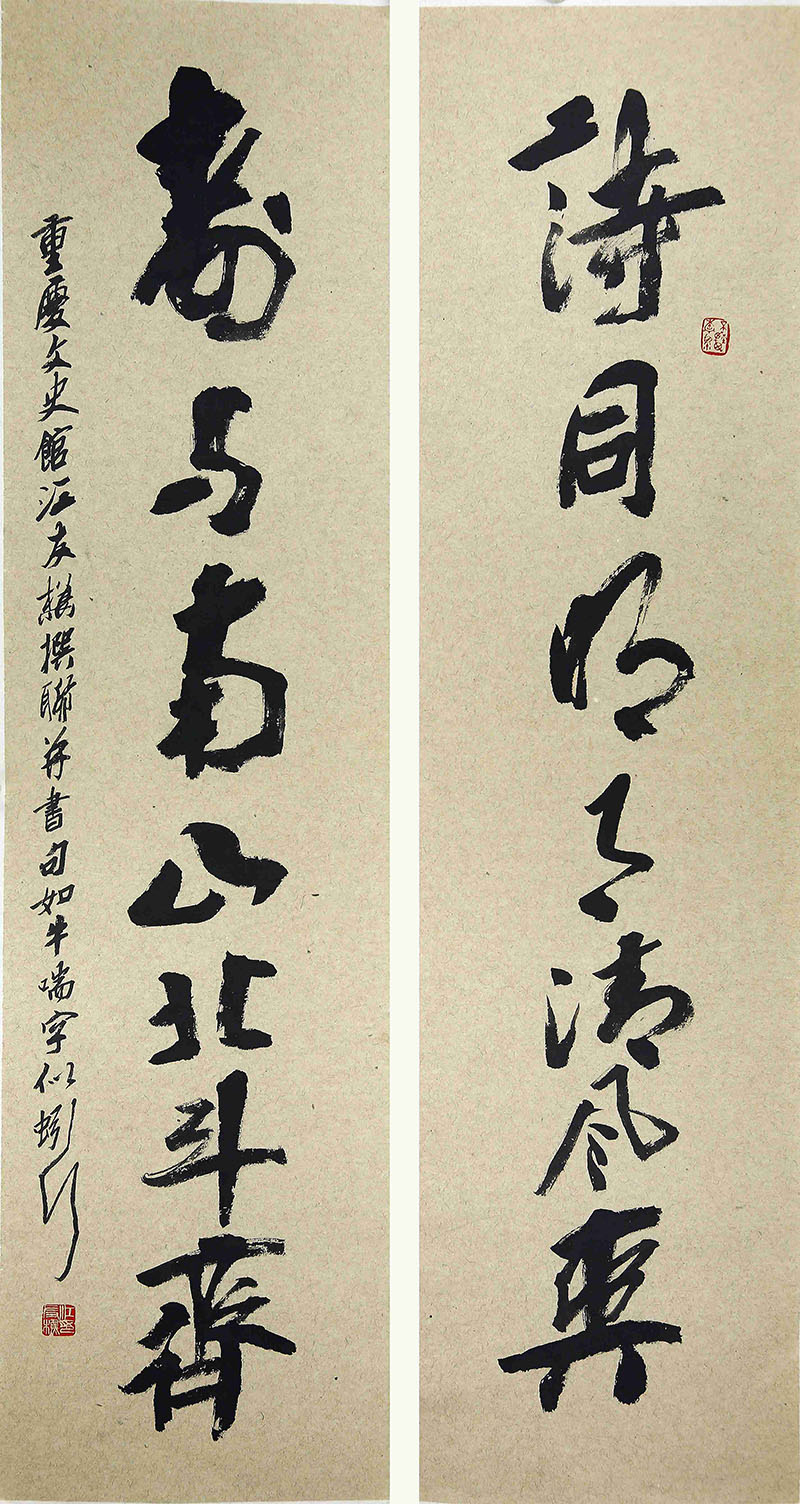 詩同明月清风
壽与南山北斗齊
重慶文史館江友樵撰聯并書句如牛喘字似蚓行